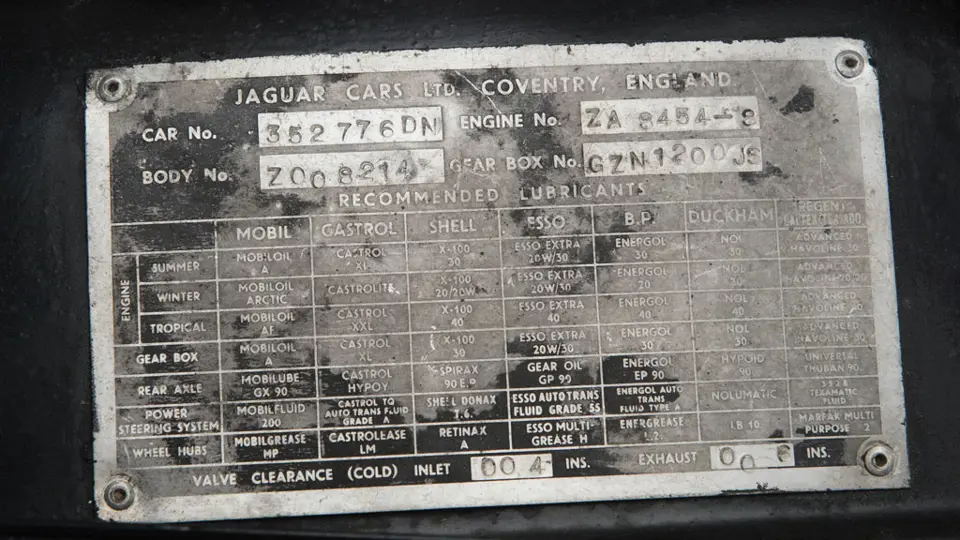 JAGUAR CARS LTD. COVENTRY, ENGLAND
CAR No. 352776DN ENGINE No. ZA 8454-8
BODY No. Z008214 GEAR BOX No. GZN1200JS
RECOMMENDED LUBRICANTS
MOBIL CASTROL SHELL ESSO B.P. DUCKHAM REGENT
ENGINE
SUMMER MOBILOIL A CASTROL XL X-100 30 ESSO EXTRA 20W/30 ENERGOL 30 NOL 30 ADVANCED HAVOLINE 30
WINTER MOBILOIL ARCTIC CASTROLITE X-100 20/20W ESSO EXTRA 20W/30 ENERGOL 20 NOL ADVANCED HAVOLINE
TROPICAL MOBILOIL AF CASTROL XXL X-100 40 ESSO EXTRA 40 ENERGOL 40 NOL 40 ADVANCED HAVOLINE 40
GEAR BOX MOBILOIL A CASTROL XL X-100 30 ESSO EXTRA 20W/30 ENERGOL 30 NOL 30 ADVANCED HAVOLINE 30
REAR AXLE MOBILUBE GX 90 CASTROL HYPOY SPIRAX 90 E.P. GEAR OIL GP 90 ENERGOL EP 90 HYPOID 90 UNIVERSAL THUBAN 90
POWER STEERING SYSTEM MOBILFLUID 200 CASTROL TQ AUTO TRANS FLUID GRADE A SHELL DONAX T.6. ESSO AUTO TRANS FLUID GRADE 55 ENERGOL AUTO TRANS FLUID TYPE A NOLUMATIC 3528 TEXAMATIC FLUID
WHEEL HUBS MOBILGREASE MP CASTROLEASE LM RETINAX A ESSO MULTI-GREASE H ENERGREASE L.2. LB 10 MARFAK MULTI PURPOSE 2
VALVE CLEARANCE (COLD) INLET 004 INS. EXHAUST 00 6 INS.